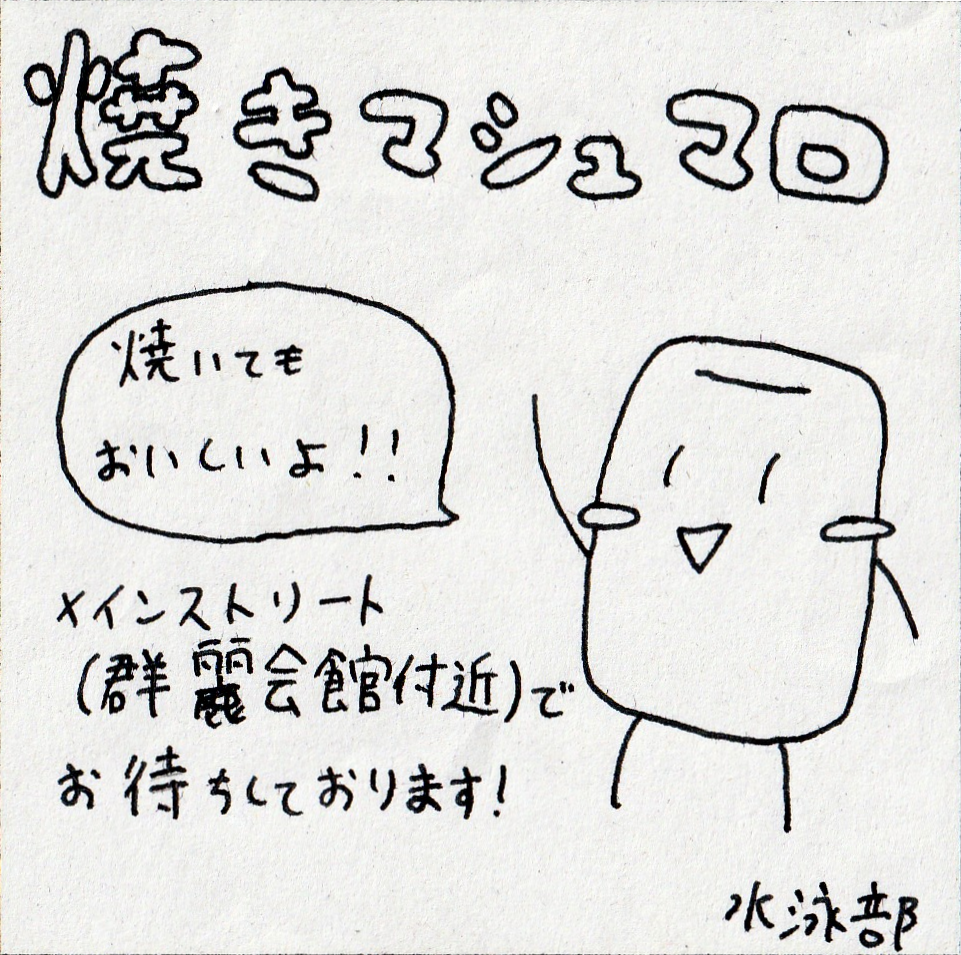 焼きマシュマロ
焼いても
おいしいよ!!
メインストリート
(群麗会館付近)で
お待ちしております!
水泳部